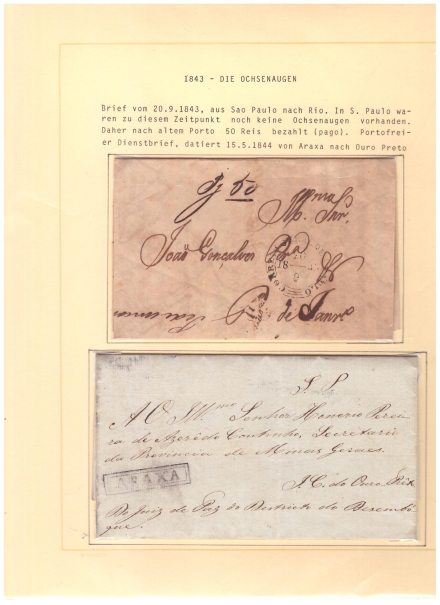 1843 - DIE OCHSENAUGEN
Brief vom 20.9.1843, aus Sao Paulo nach Rio. In S. Paulo wa-
ren zu diesem Zeitpunkt noch keine Ochsenaugen vorhanden.
Daher nach altem Porto 50 Reis bezahlt (pago). Portofrei-
er Dienstbrief, datiert 15.5.1844 von Araxa nach Ouro Preto
Pg 50
Snr.
João Gonçalves Per.ª
de Janr.º
S. P.
A O Ill.mo Senhor Honorio Perei-
ra de Azeredo Coutinho, Secretario
da Provincia de Minas Geraes.
ARAXA
I. C. do Ouro Preto
Do Juiz de Paz do Districto do Desembo-
que.